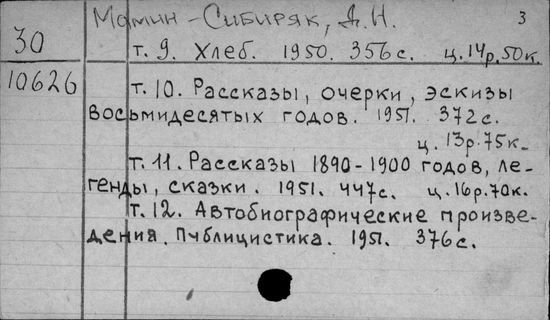 Мамин-Сибиряк, Д.Н. 3
30
т. 9. Хлеб. 1950. 356 с. ц. 14 р. 50 к.
10626
т. 10. Рассказы, очерки, эскизы
восьмидесятых годов. 1951. 372 с.
ц. 13 р. 75 к.
т. 11. Рассказы 1890-1900 годов, ле-
генды, сказки. 1951. 447 с. ц. 16 р. 70 к.
т. 12. Автобиографические произве-
дения. Публицистика. 1951. 376 с.